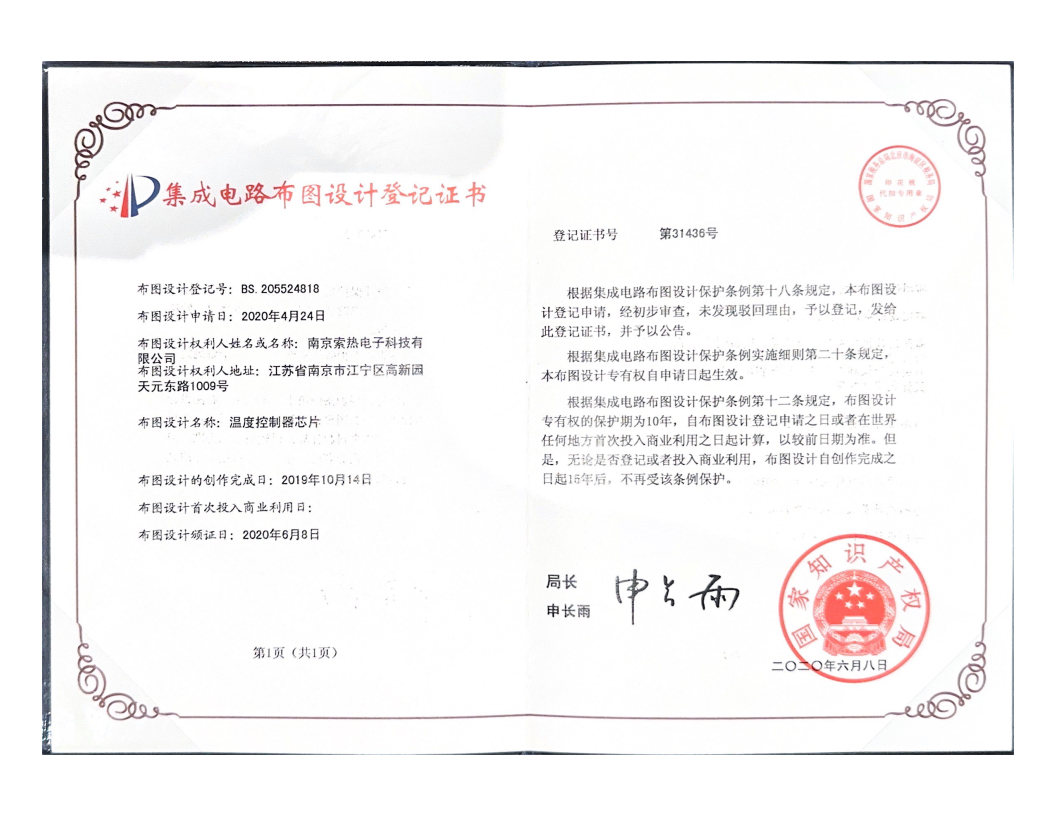 集成电路布图设计登记证书
布图设计登记号：BS.205524818
布图设计申请日：2020年4月24日
布图设计权利人姓名或名称：南京索热电子科技有
限公司
布图设计权利人地址：江苏省南京市江宁区高新园
天元东路1009号
布图设计名称：温度控制器芯片
布图设计的创作完成日：2019年10月14日
布图设计首次投入商业利用日：
布图设计颁证日：2020年6月8日
第1页（共1页）
印花税
代扣专用章
国家知识产权局
登记证书号 第31436号
根据集成电路布图设计保护条例第十八条规定，本布图设
计登记申请，经初步审查，未发现驳回理由，予以登记，发给
此登记证书，并予以公告。
根据集成电路布图设计保护条例实施细则第二十条规定，
本布图设计专有权自申请日起生效。
根据集成电路布图设计保护条例第十二条规定，布图设计
专有权的保护期为10年，自布图设计登记申请之日或者在世界
任何地方首次投入商业利用之日起计算，以较前日期为准。但
是，无论是否登记或者投入商业利用，布图设计自创作完成之
日起15年后，不再受该条例保护。
局长
申长雨
申长雨
国家知识产权局
二〇二〇年六月八日